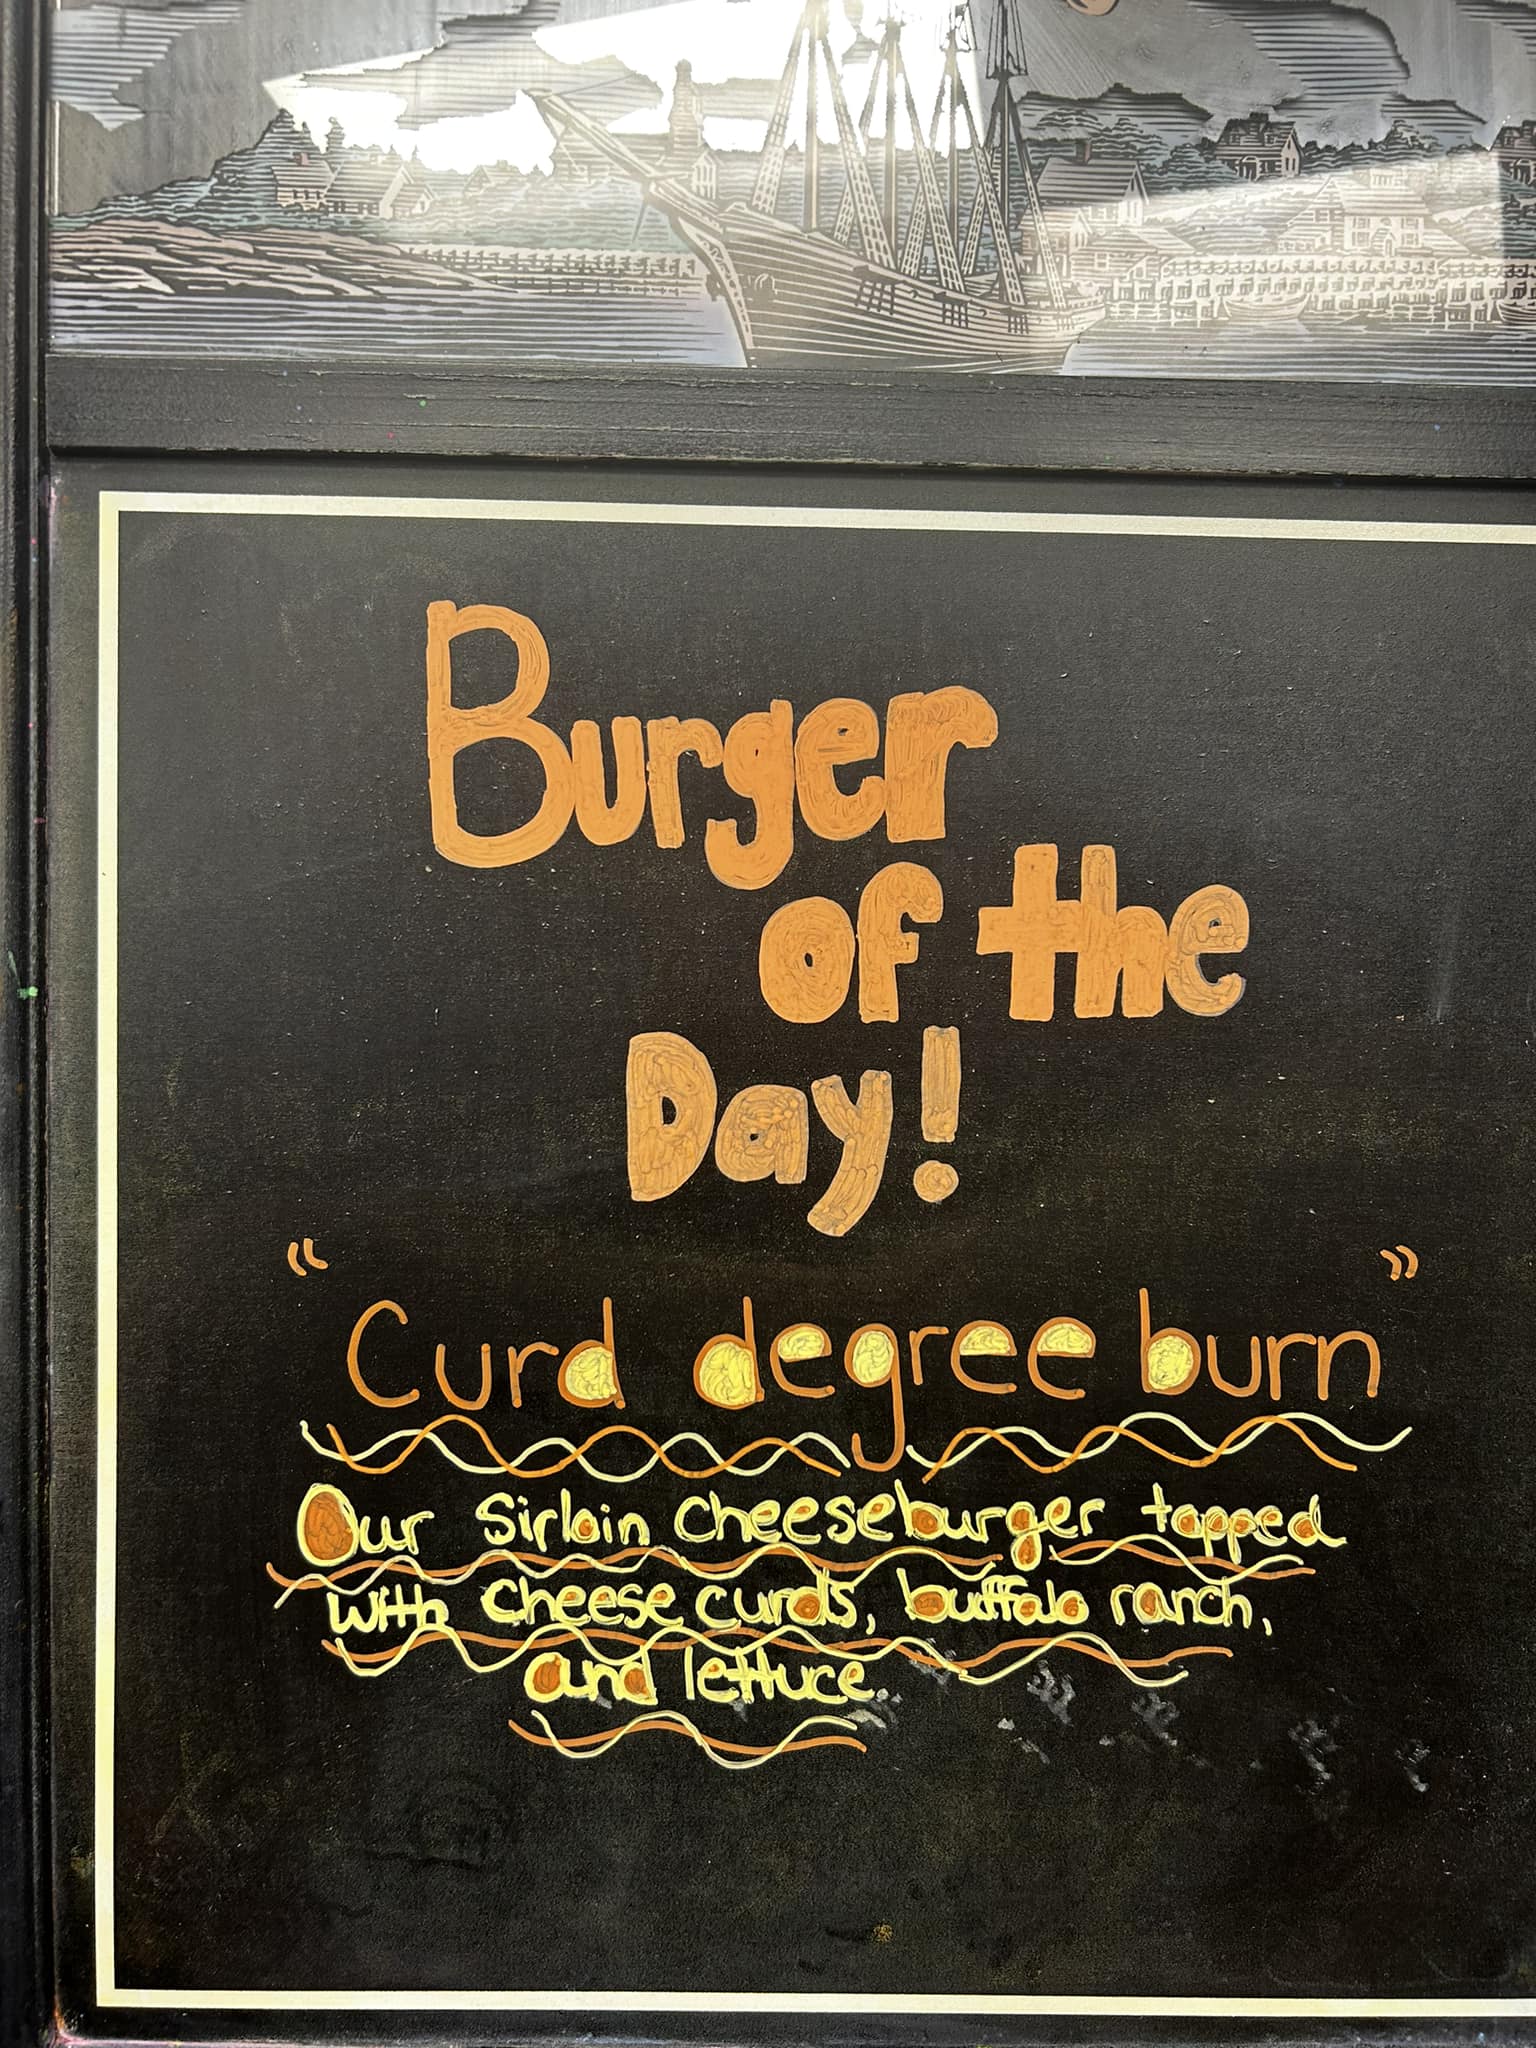 Burger
of the
Day!
“ ”
Curd degree burn
Our Sirloin cheeseburger topped
with cheese curds, buffalo ranch,
and lettuce.